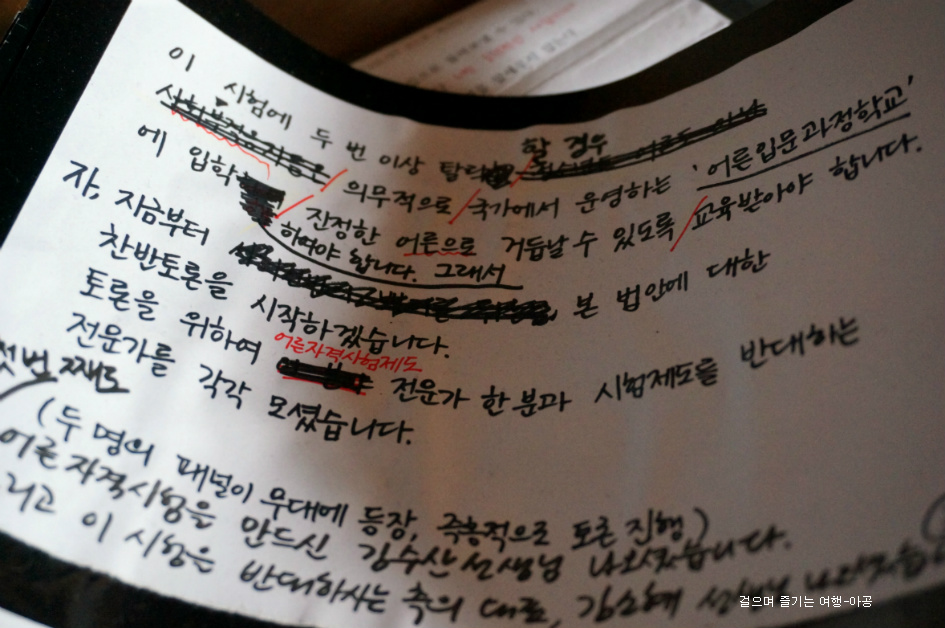 이 시험에 두 번 이상 탈락할 경우
의무적으로 국가에서 운영하는 '어른입문과정학교'
에 입학 하여야 합니다. 그래서
진정한 어른으로 거듭날 수 있도록 교육받아야 합니다.
자, 지금부터 본 법안에 대한
찬반토론을 시작하겠습니다.
토론을 위하여 어른자격시험제도 전문가 한 분과 시험제도를 반대하는
전문가를 각각 모셨습니다.
첫번째로
(두 명의 패널이 무대에 등장, 즉흥적으로 토론 진행)
어른자격시험을 만드신 김수산선생님 나오셨습니다.
그리고 이 시험을 반대하시는 측의 대표,
걸으며 즐기는 여행-아공